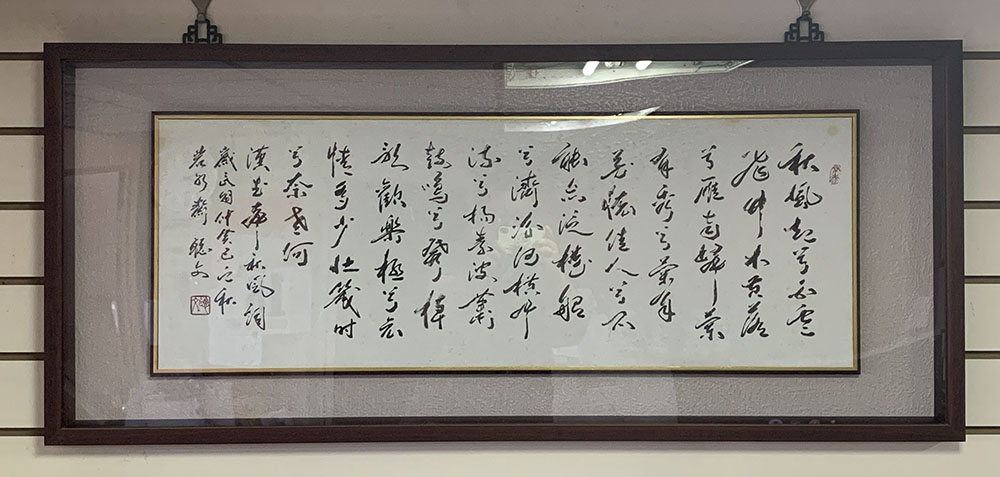 秋風起兮白雲
飛艸木黃落
兮雁南歸蘭
有秀兮菊有
芳懷佳人兮不
能忘泛樓船
兮濟汾河橫中
流兮揚素波簫
鼓鳴兮發棹
歌歡樂極兮哀
情多少壯幾時
兮奈老何
漢武帝秋風詞
歲民國癸巳之秋
若水齋 聰文